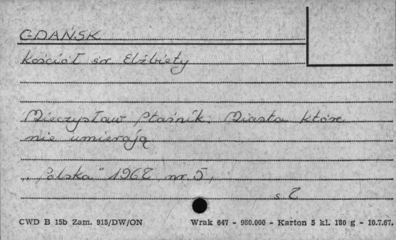 GDAŃSK
Kościół św Elżbiety
Mieczysław Ptaśnik. Miasta które
nie umierają
„Polska" 1968 nr 5,
s 2
CWD B 15b Zam. 915/DW/ON Wrak 647 - 980.000 - Karton 5 kl. 180 g - 10.7.67.